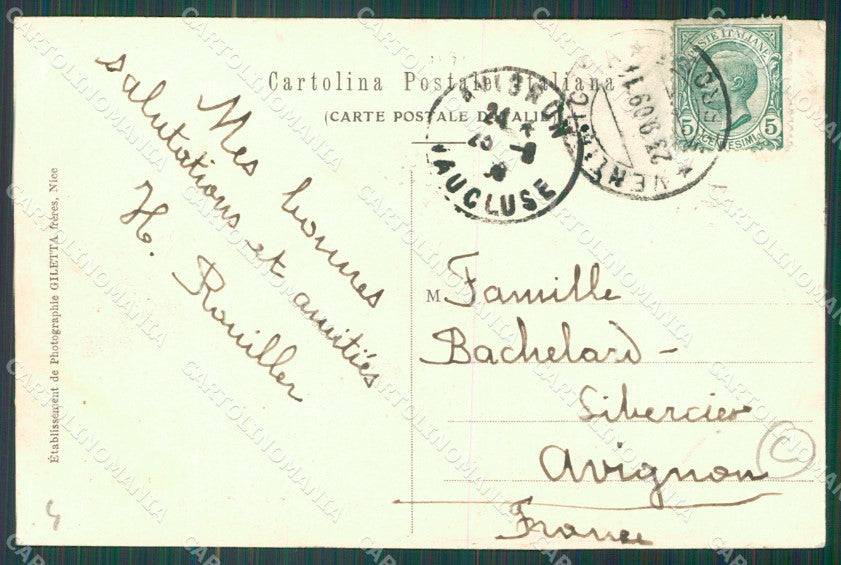 Cartolina Postale Italiana
(CARTE POSTALE D'ITALIE)
Mes bonnes
salutations et amitiés
H. Rouiller
M Famille
Bachelard-
Sibercier
Avignon
France
Établissement de Photographie GILETTA frères, Nice
AVIGNON
VAUCLUSE
VENTIMIGLIA
23.9.09
POSTE ITALIANE
5 CENTESIMI 5
C
CARTOLINOMANIA